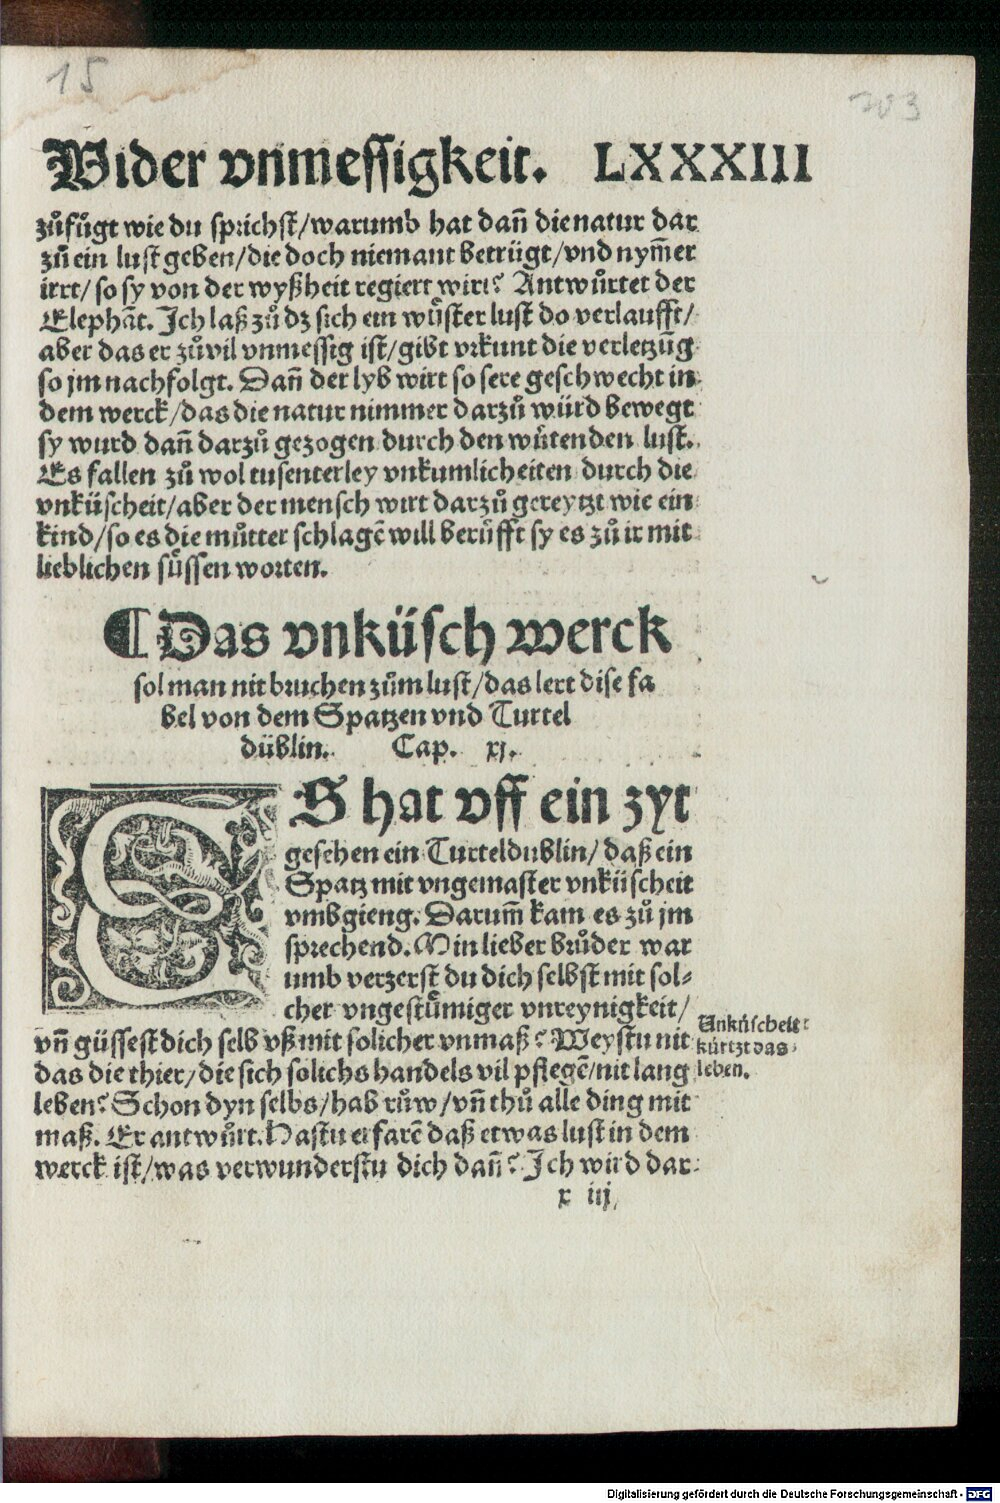 15
203
Wider vnmessigkeit. LXXXIII
zůfůgt wie du sprichst/warumb hat dañ die natur dar
zů ein lust geben/die doch niemant betrügt/vnd nym̃er
irrt/so sy von der wyßheit regiert wirt? Antwůrtet der
Elephãt. Ich laß zů dz sich ein wůster lust do verlaufft/
aber das er zůvil vnmessig ist/gibt vrkunt die verletzũg
so jm nachfolgt. Dañ der lyb wirt so sere geschwecht in
dem werck/das die natur nimmer darzů würd bewegt
sy wurd dañ darzů gezogen durch den wůtenden lust.
Es fallen zů wol tusenterley vnkumlicheiten durch die
vnküscheit/aber der mensch wirt darzů gereytzt wie ein
kind/so es die můtter schlagẽ will berůfft sy es zů ir mit
lieblichen sůssen worten.
¶Das vnküsch werck
sol man nit bruchen zům lust/das lert dise fa
bel von dem Spatzen vnd Turtel
düblin. Cap. xj.
ES hat vff ein zyt
gesehen ein Turteldublin/daß ein
Spatz mit vngemaster vnküscheit
vmbgieng. Darum̃ kam es zů jm
sprechend. Min lieber brůder war
umb verzerst du dich selbst mit sol-
cher vngestůmiger vnreynigkeit/
vñ güssest dich selb vß mit solicher vnmaß? Weystu nit
das die thier/die sich sölichs handels vil pflegẽ/nit lang
leben? Schon dyn selbs/hab růw/vñ thů alle ding mit
maß. Er antwůrt. Hastu erfarẽ daß etwas lust in dem
werck ist/was verwunderstu dich dañ? Ich wird dar-
Unkůscheit
kürtzt das
leben.
x iij
Digitalisierung gefördert durch die Deutsche Forschungsgemeinschaft - DFG